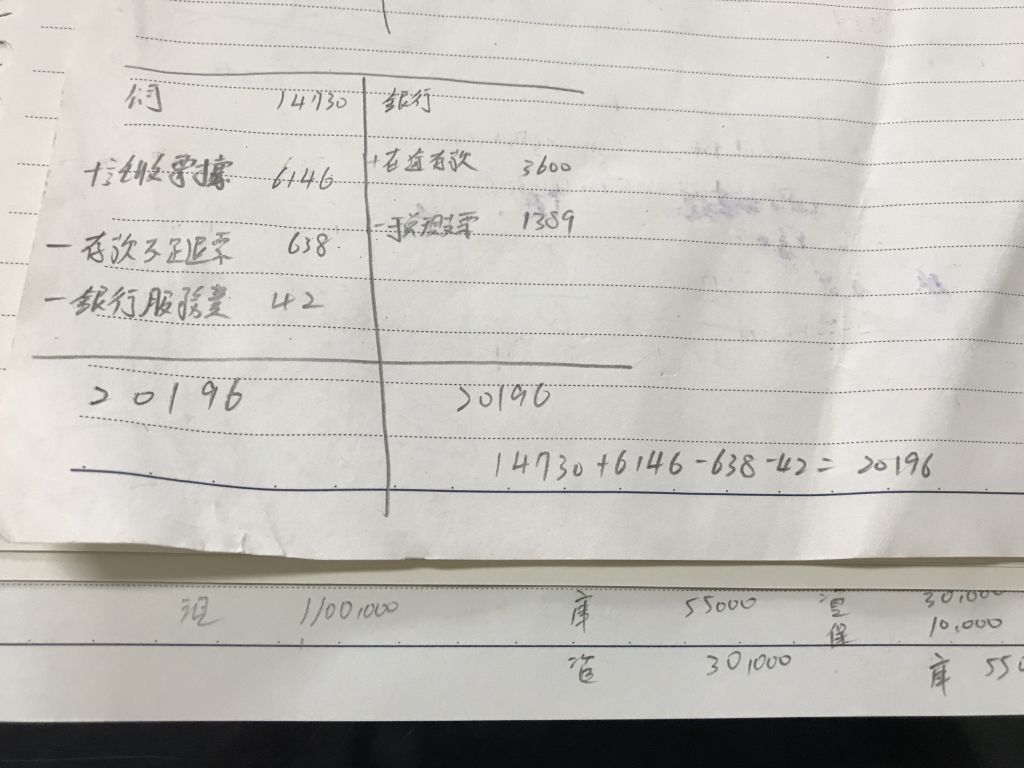 公司 14730
銀行
+託收票據 6146
+在途存款 3600
-存款不足退票 638
-未兌現支票 1389
-銀行服務費 42
20196
20196
14730+6146-638-42= 20196
1,100,000
庫 55000
30,000
保 10,000
30,000
庫 550